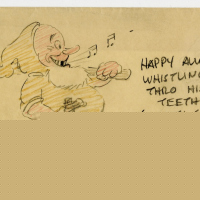 HAPPY
WHISTLIN
THRO HI
TEETH